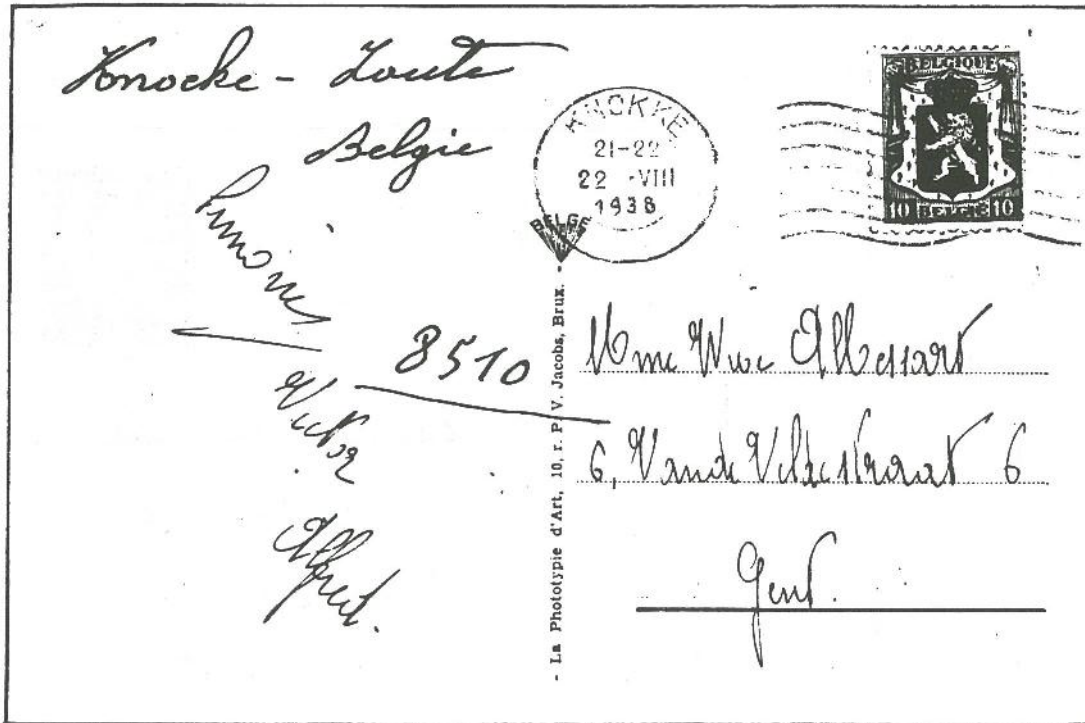 Knocke - Zoute
Belgie
Simone
8510
Victor
Alfred.
KNOKKE
21-22
22 -VIII
1938
BELGE
BELGIQUE
10 BELGIË 10
- La Phototypie d'Art, 10, r. P. V. Jacobs, Brux. -
Mme Wwe
6, Vande Veldestraat 6
Gent.